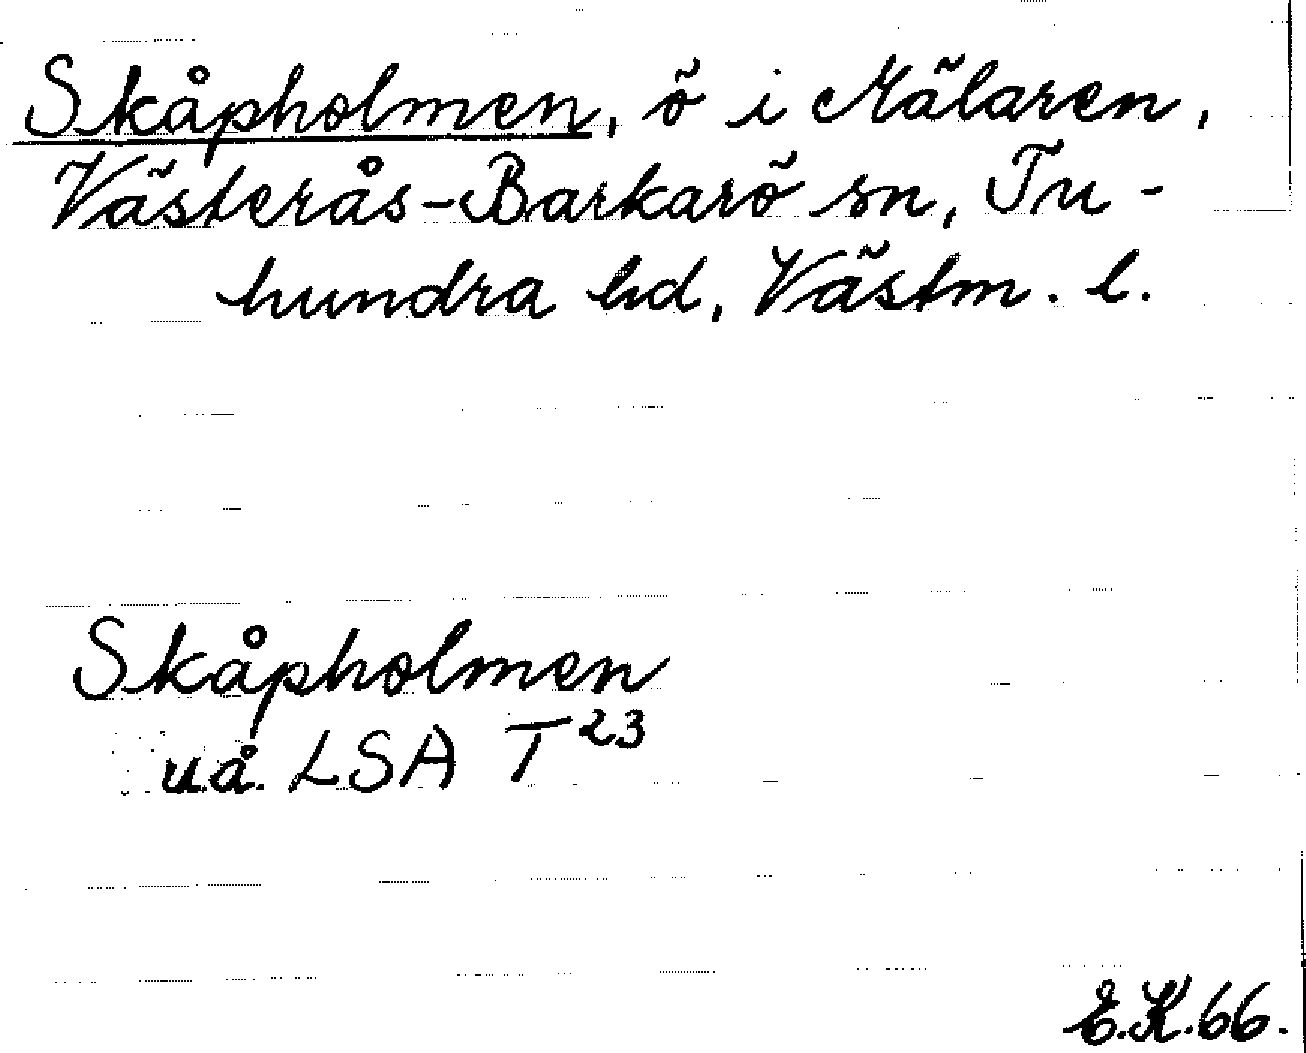 Skåpholmen, ö i Mälaren,
Västerås-Barkarö sn, Tu-
hundra hd, Västm. l.
Skåpholmen
u.å. LSA T 23
E.K.66.